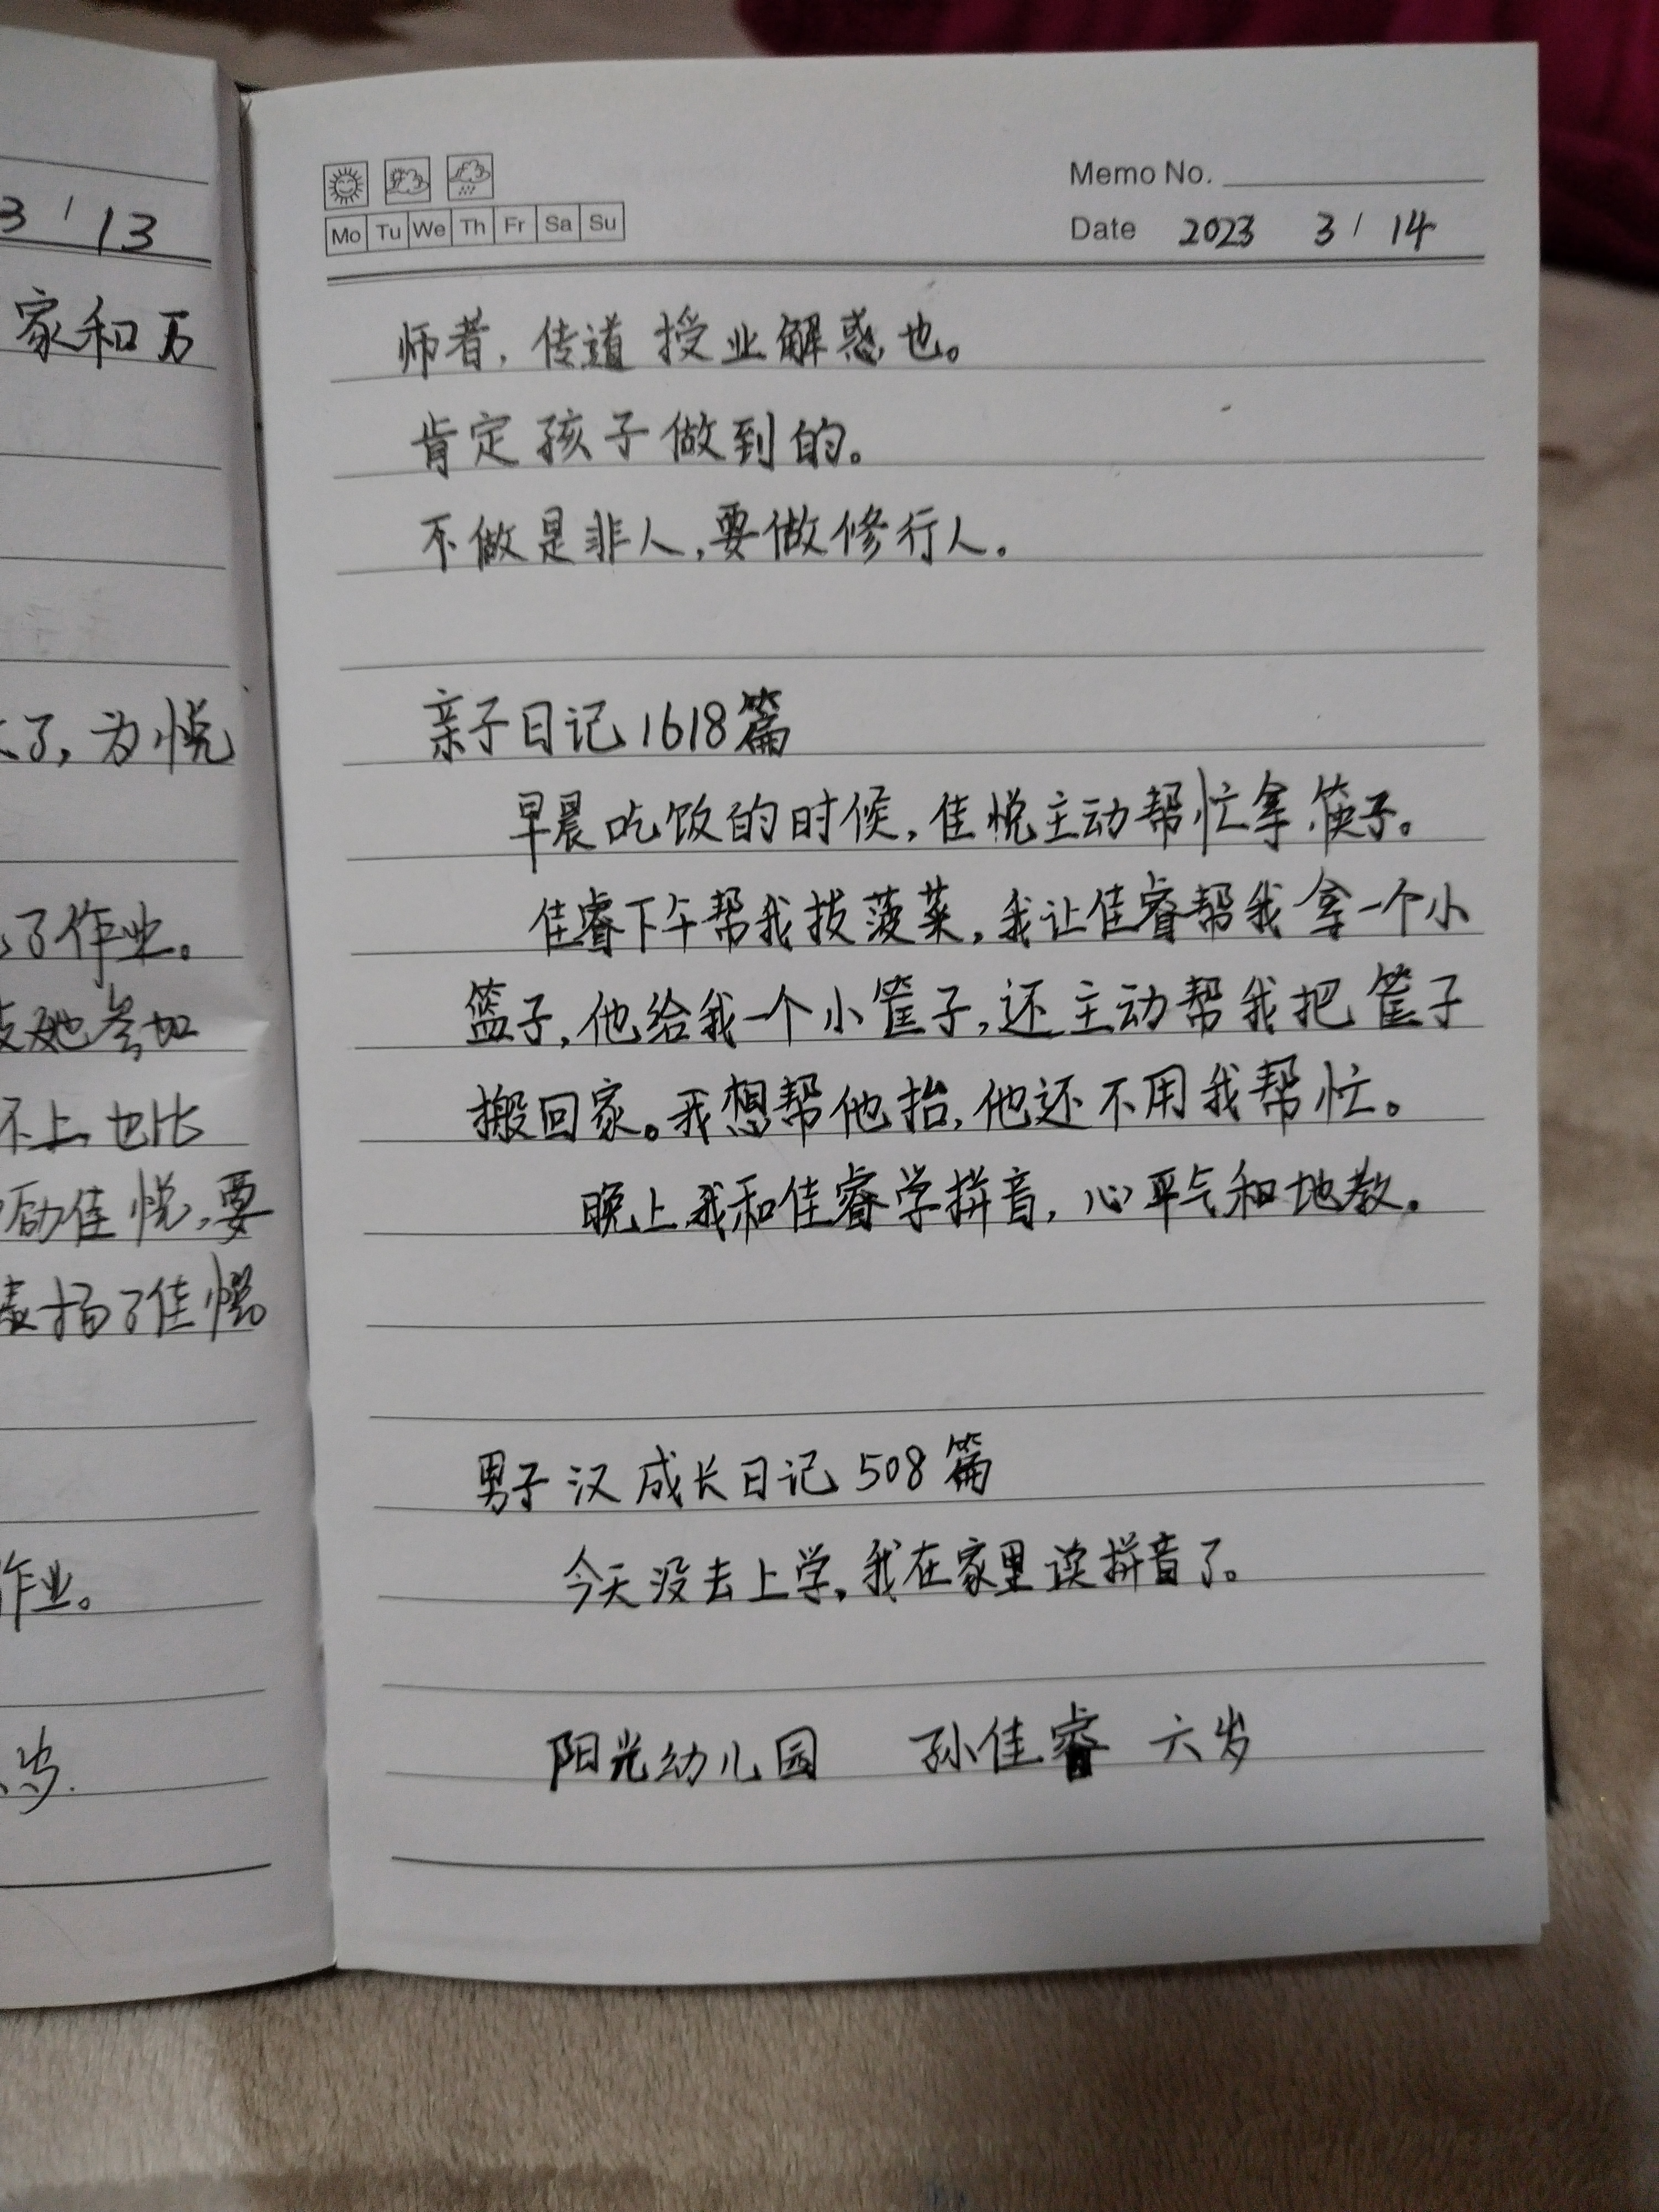 3 / 13
家和万
了，为悦
了作业。
她参加
不上，也比
励佳悦，要
表扬了佳悦
作业。
岁.
Mo Tu We Th Fr Sa Su
Memo No.
Date 2023 3 / 14
师者，传道授业解惑也。
肯定孩子做到的。
不做是非人，要做修行人。
亲子日记1618篇
早晨吃饭的时候，佳悦主动帮忙拿筷子。
佳睿下午帮我拔菠菜，我让佳睿帮我拿一个小
篮子，他给我一个小筐子，还主动帮我把筐子
搬回家。我想帮他抬，他还不用我帮忙。
晚上我和佳睿学拼音，心平气和地教。
男子汉成长日记508篇
今天没去上学，我在家里读拼音了。
阳光幼儿园 孙佳睿 六岁